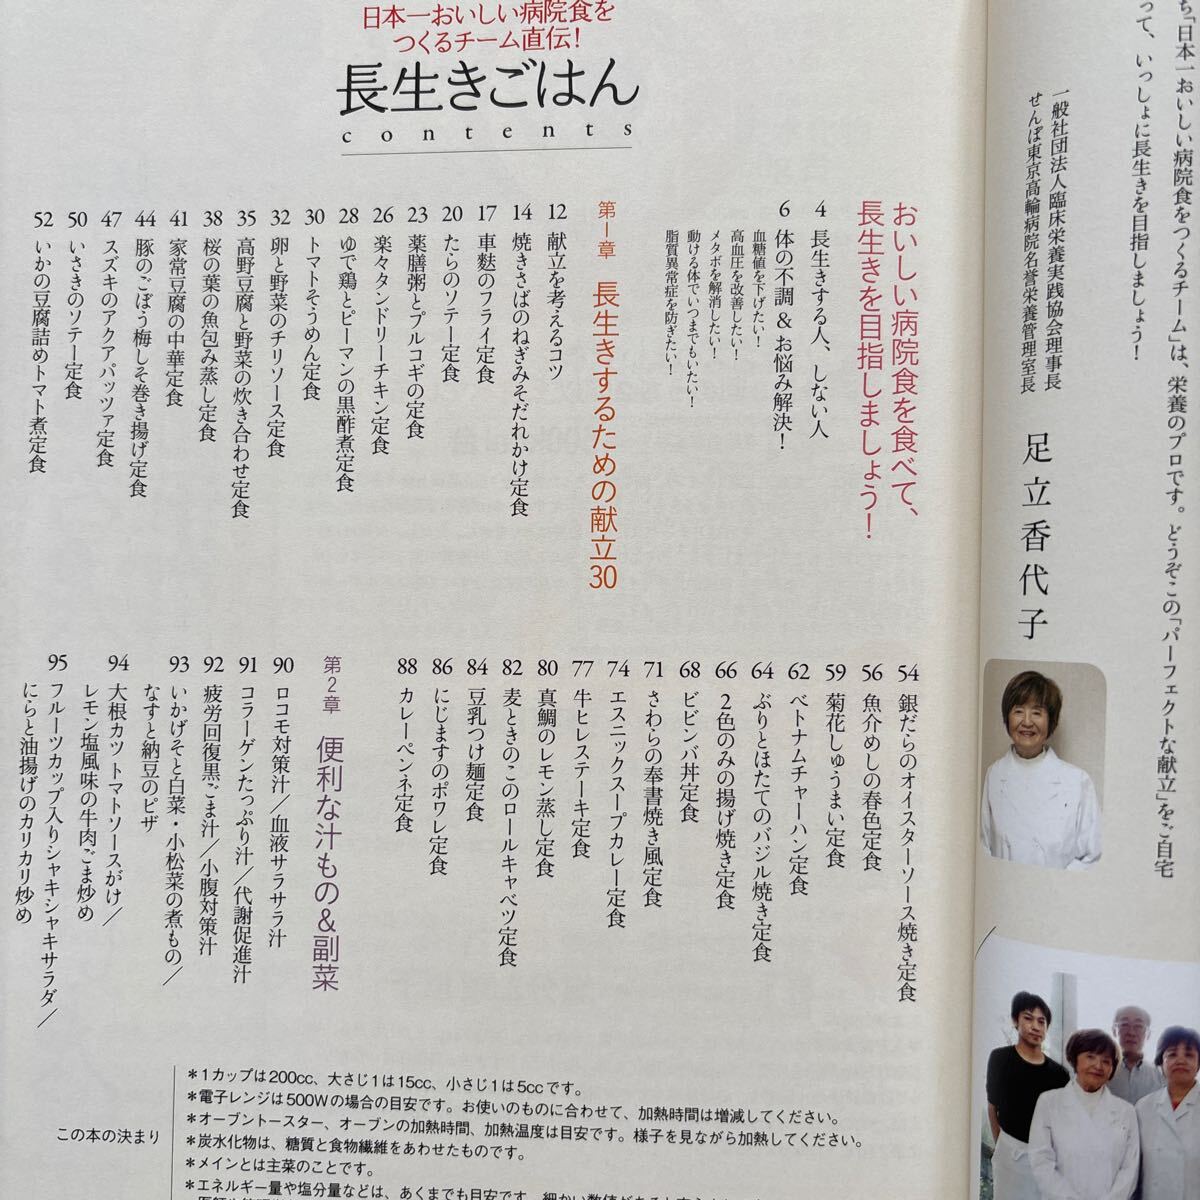 ち「日本一おいしい病院食をつくるチーム」は、栄養のプロです。どうぞこの「パーフェクトな献立」をご自宅
って、いっしょに長生きを目指しましょう!
一般社団法人臨床栄養実践協会理事長
せんぽ東京高輪病院名誉栄養管理室長
足立香代子
日本一おいしい病院食を
つくるチーム直伝!
長生きごはん
contents
おいしい病院食を食べて、
長生きを目指しましょう!
4 長生きする人、しない人
6 体の不調&お悩み解決!
血糖値を下げたい!
高血圧を改善したい!
メタボを解消したい!
動ける体でいつまでもいたい!
脂質異常症を防ぎたい!
第1章 長生きするための献立30
12 献立を考えるコツ
14 焼きさばのねぎみそだれかけ定食
17 車麩のフライ定食
20 たらのソテー定食
23 薬膳粥とプルコギの定食
26 楽々タンドリーチキン定食
28 ゆで鶏とピーマンの黒酢煮定食
30 トマトそうめん定食
32 卵と野菜のチリソース定食
35 高野豆腐と野菜の炊き合わせ定食
38 桜の葉の魚包み蒸し定食
41 家常豆腐の中華定食
44 豚のごぼう梅しそ巻き揚げ定食
47 スズキのアクアパッツァ定食
50 いさきのソテー定食
52 いかの豆腐詰めトマト煮定食
54 銀だらのオイスターソース焼き定食
56 魚介めしの春色定食
59 菊花しゅうまい定食
62 ベトナムチャーハン定食
64 ぶりとほたてのバジル焼き定食
66 2色のみの揚げ焼き定食
68 ビビンバ丼定食
71 さわらの奉書焼き風定食
74 エスニックスープカレー定食
77 牛ヒレステーキ定食
80 真鯛のレモン蒸し定食
82 麦ときのこのロールキャベツ定食
84 豆乳つけ麺定食
86 にじますのポワレ定食
88 カレーペンネ定食
第2章 便利な汁もの&副菜
90 ロコモ対策汁/血液サラサラ汁
91 コラーゲンたっぷり汁/代謝促進汁
92 疲労回復黒ごま汁/小腹対策汁
93 いかげそと白菜・小松菜の煮もの/
なすと納豆のピザ
94 大根カツ トマトソースがけ/
レモン塩風味の牛肉ごま炒め
95 フルーツカップ入りシャキシャキサラダ/
にらと油揚げのカリカリ炒め
この本の決まり
*1カップは200cc、大さじ1は15cc、小さじ1は5ccです。
*電子レンジは500Wの場合の目安です。お使いのものに合わせて、加熱時間は増減してください。
*オーブントースター、オーブンの加熱時間、加熱温度は目安です。様子を見ながら加熱してください。
*炭水化物は、糖質と食物繊維をあわせたものです。
*メインとは主菜のことです。
*エネルギー量や塩分量などは、あくまでも目安です。